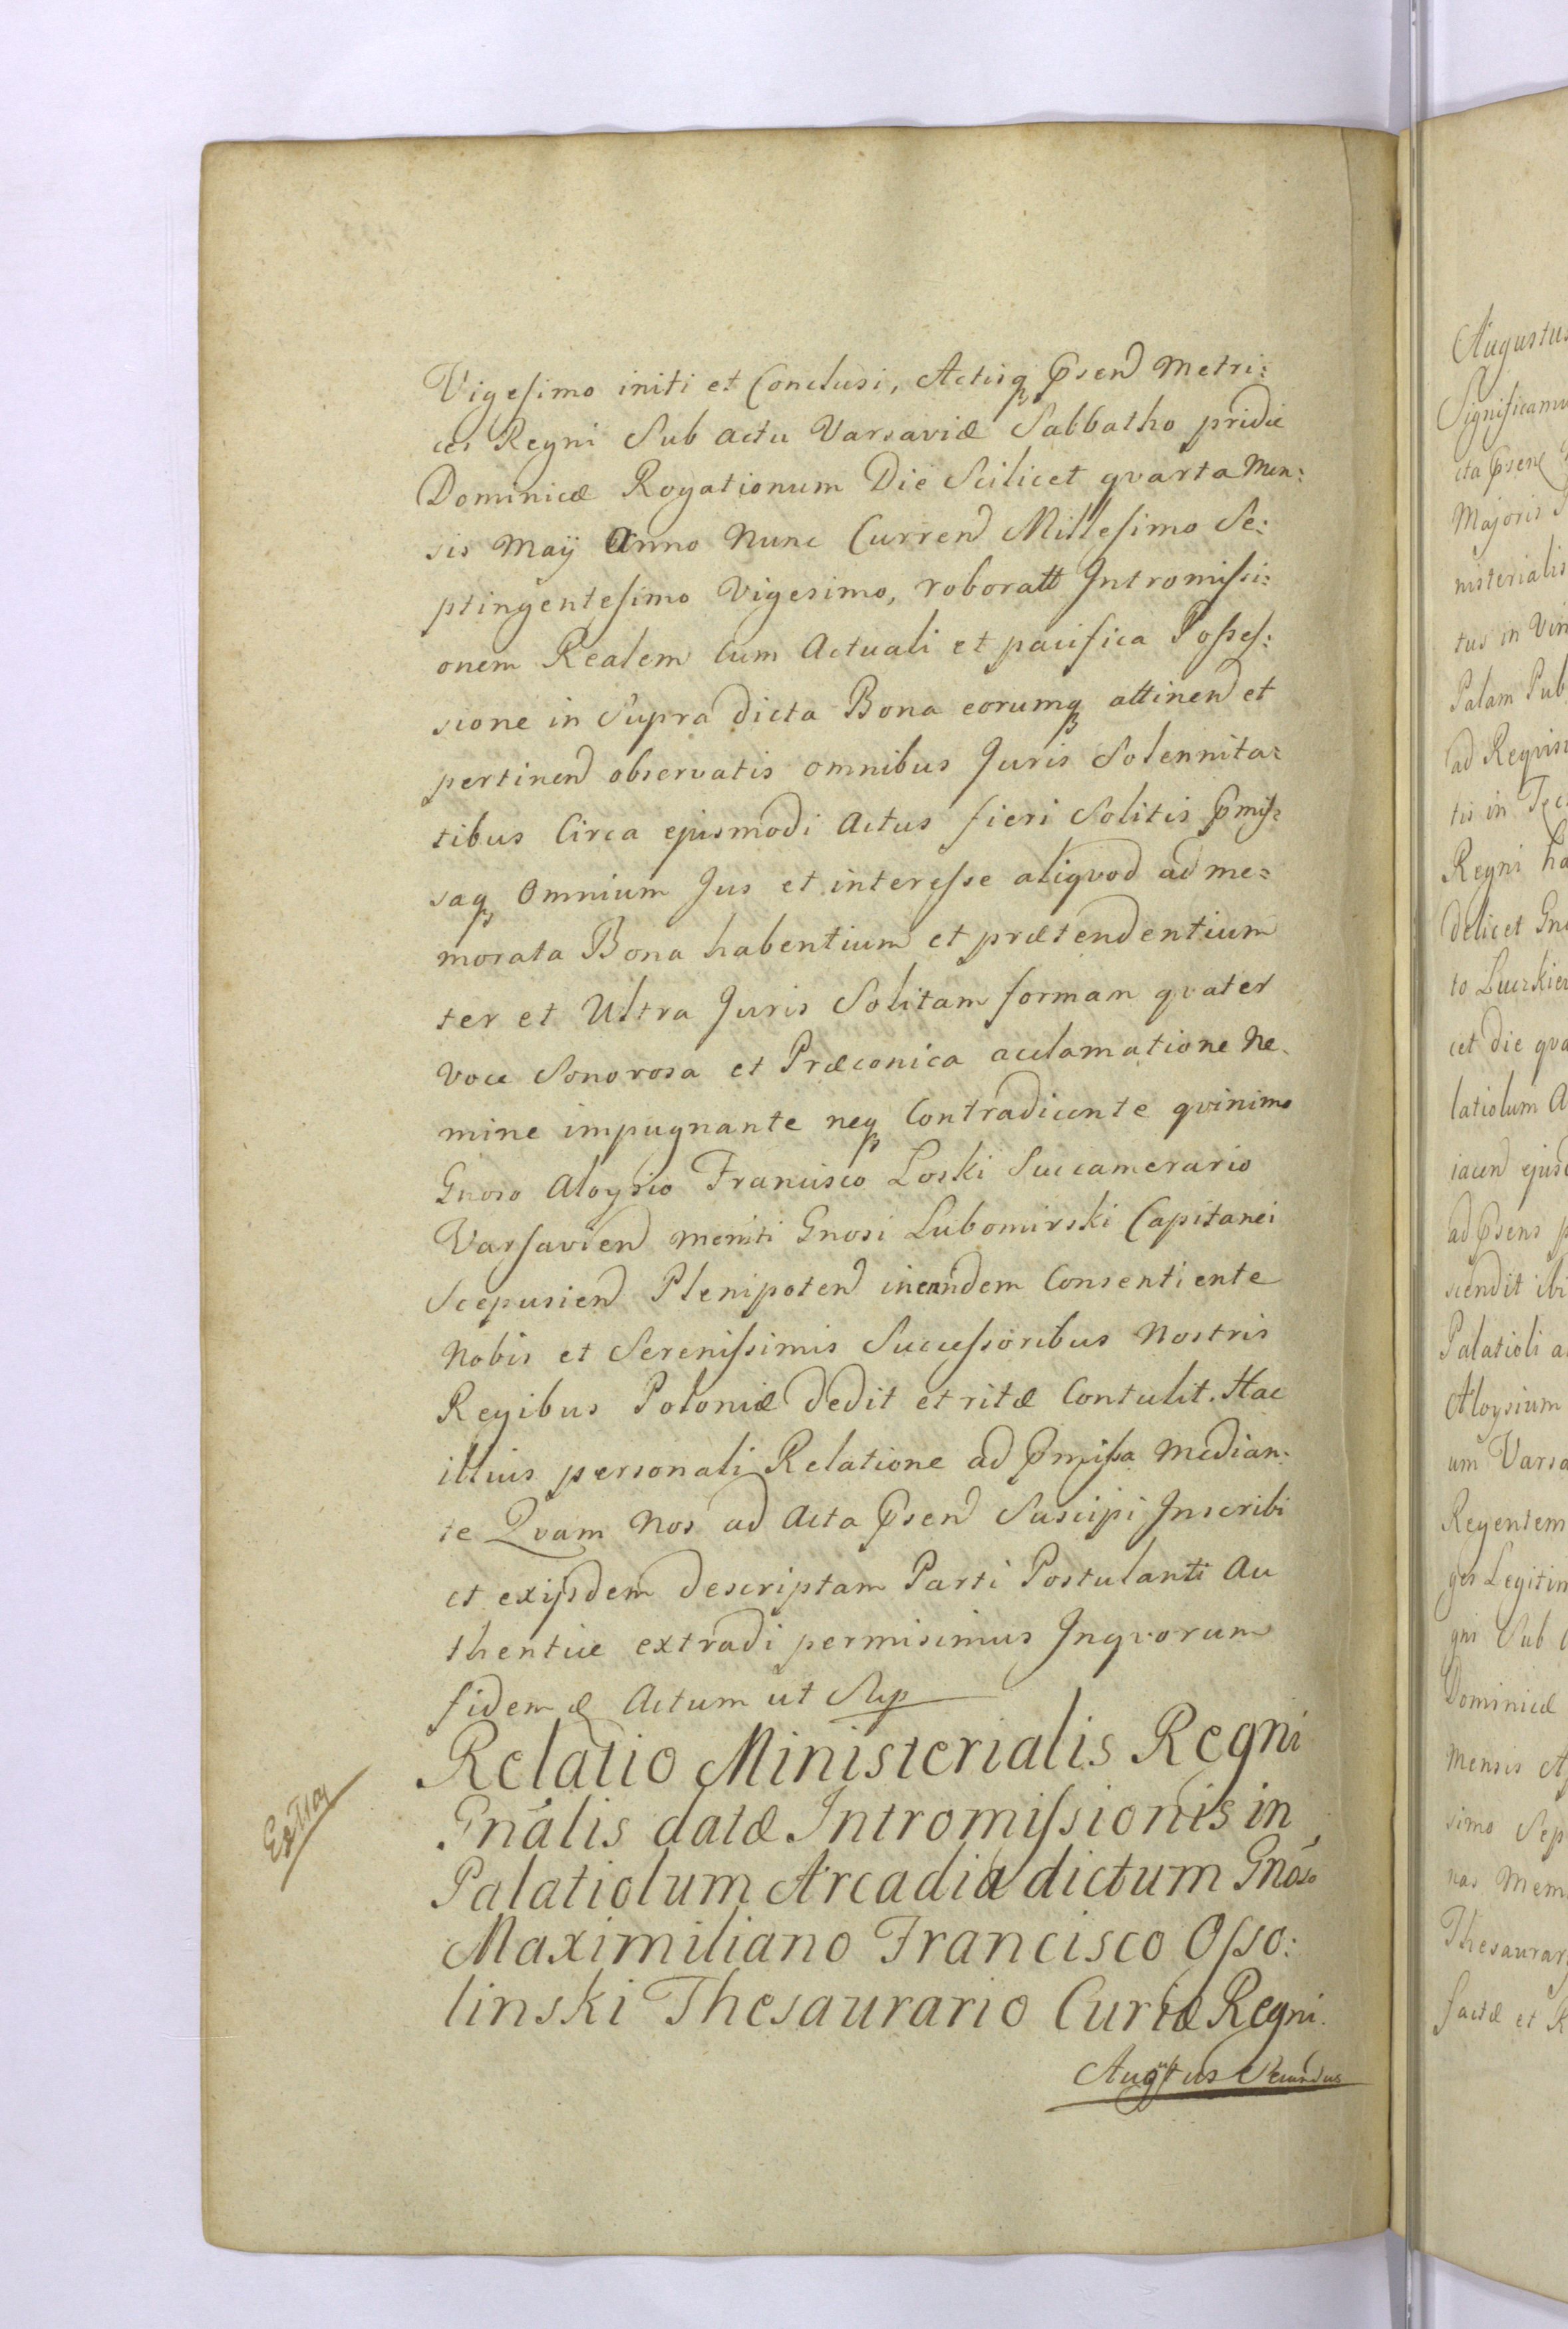 Vigesimo initi et Conclusi, Actisq Psend Metri:
ces Regni Sub actu Varsaviæ Sabbatho pridie
Dominicæ Rogationum Die Scilicet qvarta Men:
sis Maÿ Anno Nunc Currend Millesimo Se:
ptingentesimo Vigesimo, roboratt Intromissi:
onem Realem Cum Actuali et pacifica Posses:
sione in Supra dicta Bona eorumq attinend et
pertinend observatis omnibus Juris Solennita:
tibus Circa ejusmodi Actus fieri Solitis Pmis:
saq Omnium Jus et interesse aliqvod ad me:
morata Bona habentium et prætendentium
ter et Ultra Juris Solitam formam qvater
Voce Sonorosa et Præconica acclamatione Ne.
mine impugnante neq Contradicente qvinimo
Gnoso Aloysio Francisco Loski Succamerario
Varsaviend memti Gnosi Lubomirski Capitanei
Scepusiend Plenipotend ineandem Consentiente
Nobis et Serenissimis Successoribus Nostris
Regibus Poloniæ dedit et ritæ Contulit. Hac
illius personali Relatione ad Pmissa Median:
te Qvam Nos ad Acta Psend Suscipi Inscribi
et exijsdem descriptam Parti Postulanti Au
thentice extradi permisimus Inqvorum
fidem & Actum ut Sup
Relatio Ministerialis Regni
Gnālis datæ Intromissionis in
Palatiolum Arcadia dictum Gnōso
Maximiliano Francisco Osso:
linski Thesaurario Curiæ Regni.
Augustus Secundus
Augustus
Significamu
cta Psend
Majoris
nisterialis
tus in
Palam Pub
ad Reqvisi
tis in
Regni ha
delicet Gno
to
cet die qva
latiolum A
iacend ejusd
ad Psens p
scendit ibi
Palatioli a
Aloysium
um Varsa
Regentem
ges Legitim
gni Sub
Dominicæ
Mensis
simo Sep
nas Mem
Thesaurar
factæ et R